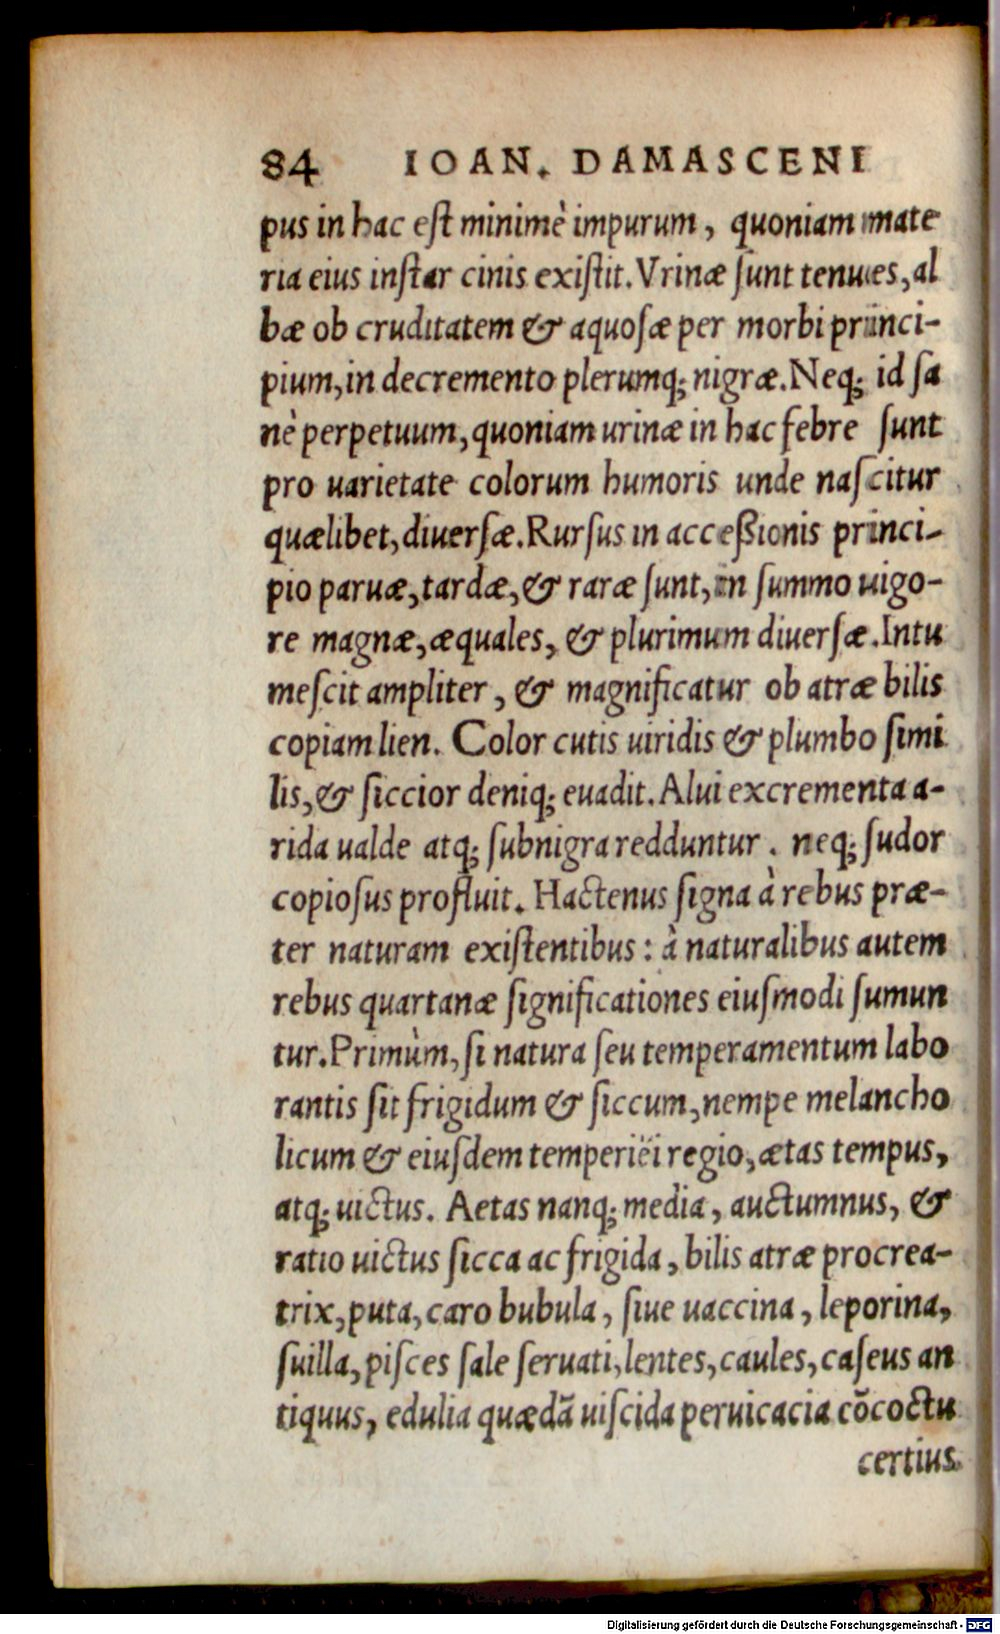 84 IOAN. DAMASCENI
pus in hac eſt minimè impurum, quoniam mate
ria eius inſtar cinis exiſtit. Vrinæ ſunt tenues, al
bæ ob cruditatem & aquoſæ per morbi princi-
pium, in decremento plerumq; nigræ. Neq; id ſa
nè perpetuum, quoniam urinæ in hac febre ſunt
pro uarietate colorum humoris unde naſcitur
quælibet, diuerſæ. Rurſus in acceßionis princi-
pio paruæ, tardæ, & raræ ſunt, in ſummo uigo-
re magnæ, æquales, & plurimum diuerſæ. Intu
meſcit ampliter, & magnificatur ob atræ bilis
copiam lien. Color cutis uiridis & plumbo ſimi
lis, & ſiccior deniq; euadit. Alui excrementa a-
rida ualde atq; ſubnigra redduntur. neq; ſudor
copioſus profluit. Hactenus ſigna à rebus præ-
ter naturam exiſtentibus: à naturalibus autem
rebus quartanæ ſignificationes eiuſmodi ſumun
tur. Primùm, ſi natura ſeu temperamentum labo
rantis ſit frigidum & ſiccum, nempe melancho
licum & eiuſdem temperiëi regio, ætas tempus,
atq; uictus. Aetas nanq; media, auctumnus, &
ratio uictus ſicca ac frigida, bilis atræ procrea-
trix, puta, caro bubula, ſiue uaccina, leporina,
ſuilla, piſces ſale ſeruati, lentes, caules, caſeus an
tiquus, edulia quædã uiſcida peruicacia cõcoctu
certius
Digitalisierung gefördert durch die Deutsche Forschungsgemeinschaft - DFG